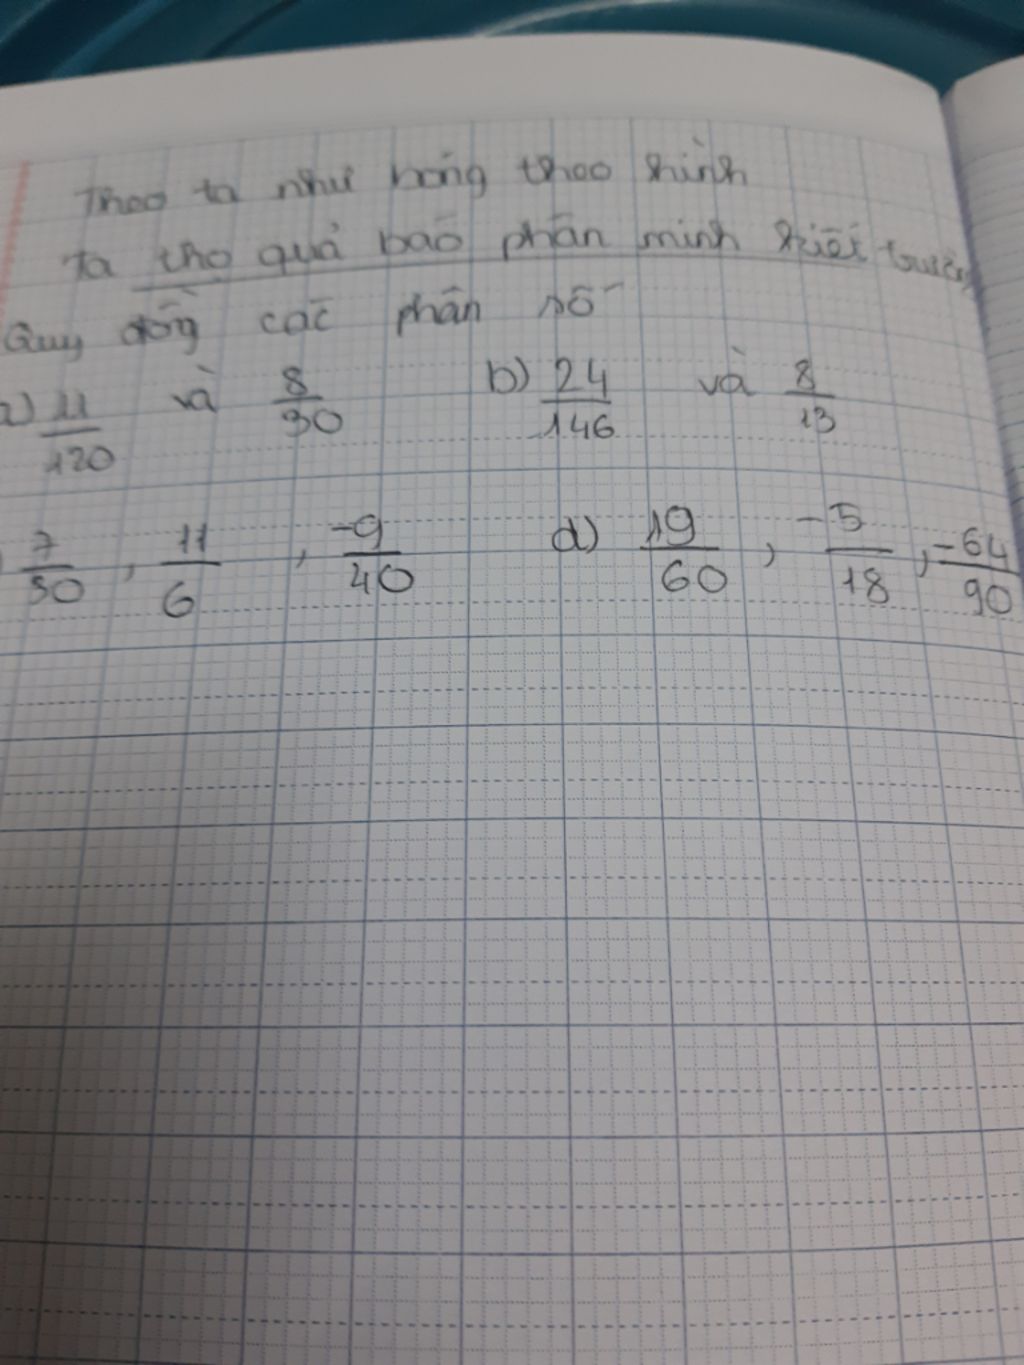 Theo ta như bóng theo hình
Ta cho quả báo phân minh kiết tường
Quy đồng các phân số
a) 11/120 và 8/30 b) 24/146 và 8/13
7/30 , 11/6 , -9/40 d) 19/60 , -5/18 , -64/90